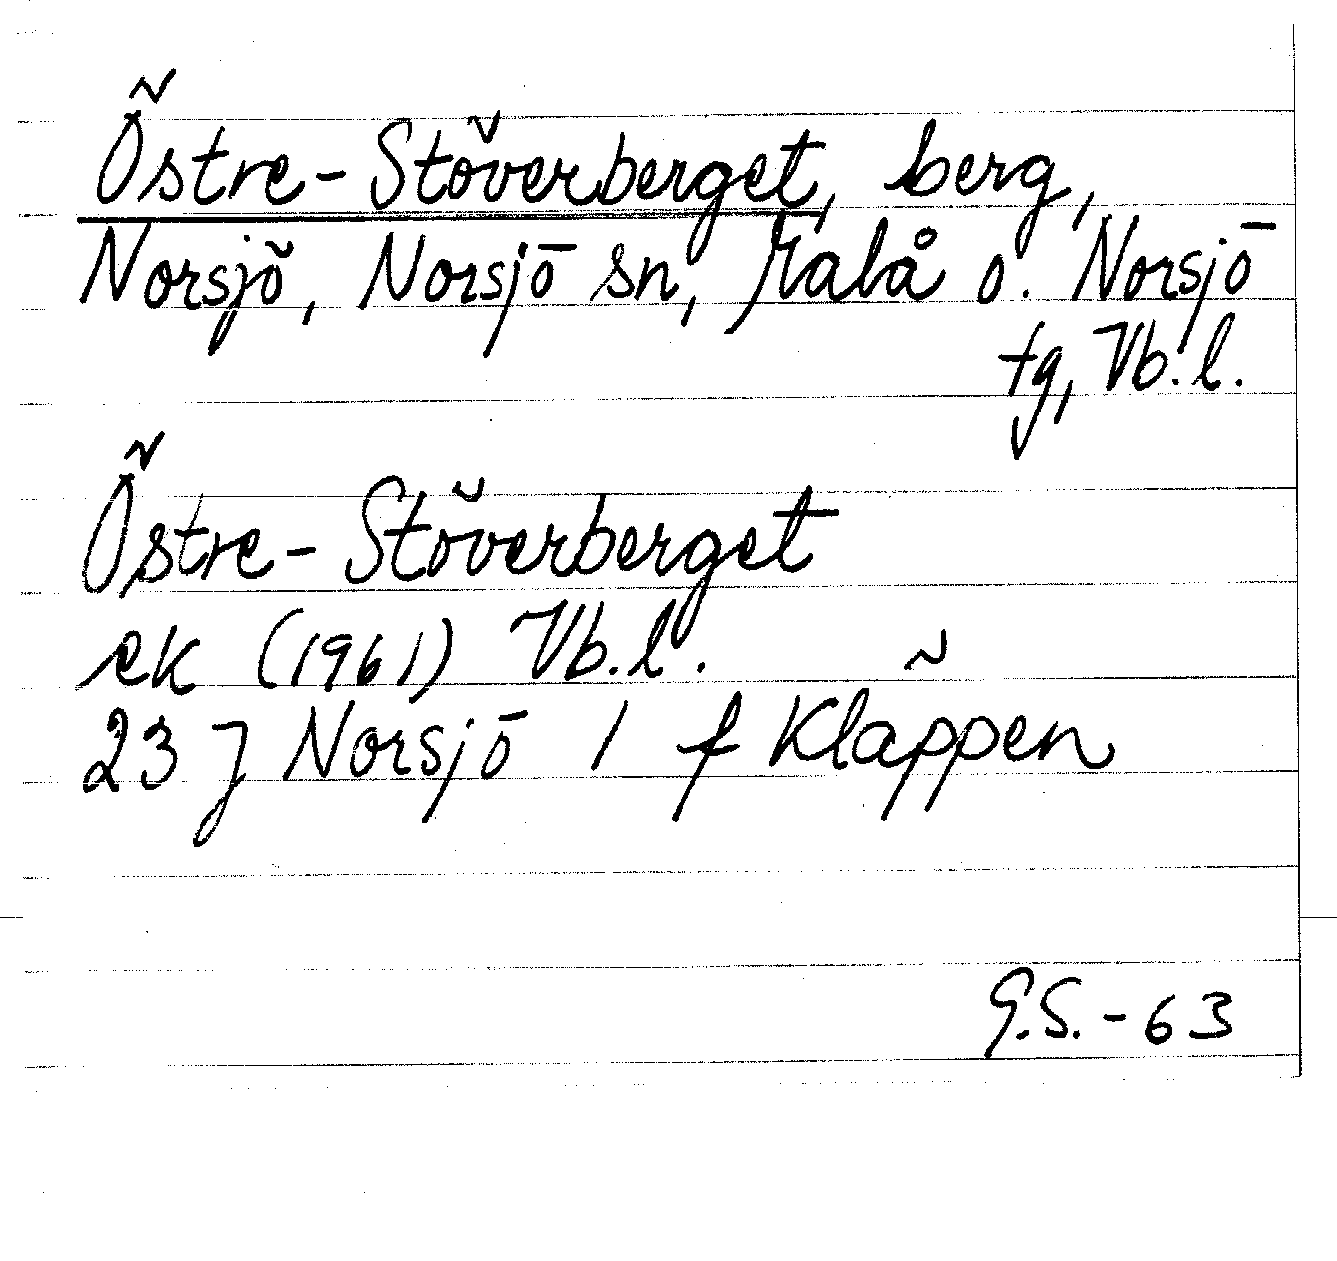 Östre-Stöverberget, berg,
Norsjö, Norsjö sn, Malå o. Norsjö
tg, Vb. l.
Östre-Stöverberget
ek (1961) Vb. l.
23 J Norsjö 1 f Kläppen
G.S.-63